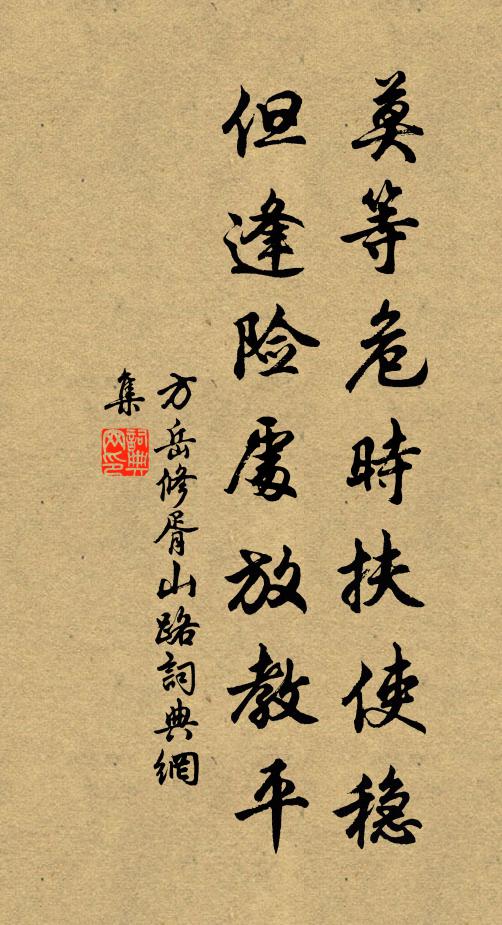 莫等危時扶使穏
但逢险處放教平
方岳修胥山路詞典網
集
詞典
网印